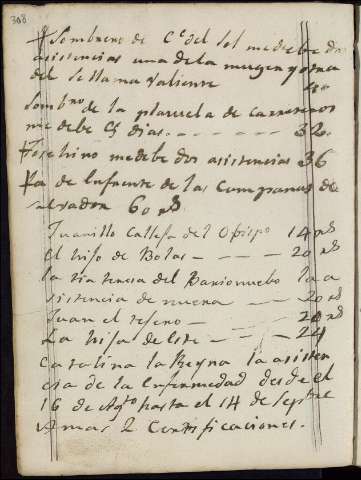 308
Sombrero de C.e del Sol me debe dos
asistencias una de la muger y otra
del se llama Valiente 40
Sombro de la plazuela de carreteros
me debe 8 dias. - - - - 32.
Josehino me debe dos asistencias 36
La de Enfrente de las Campanas de
salvador 60 rs
Juanillo Calleja del Obispo 14 rs
El hijo de Botas - - - 20 rs
la tia teresa del Barionuebo la a
sistencia de nuera - - 20 rs
Juan el - 20 rs
La hija de Este - - - 24
Catalina la Reyna la asisten
cia de la Enfermedad desde el
16 de Agto hasta el 14 de Septre
Amas 2 Certificaciones.